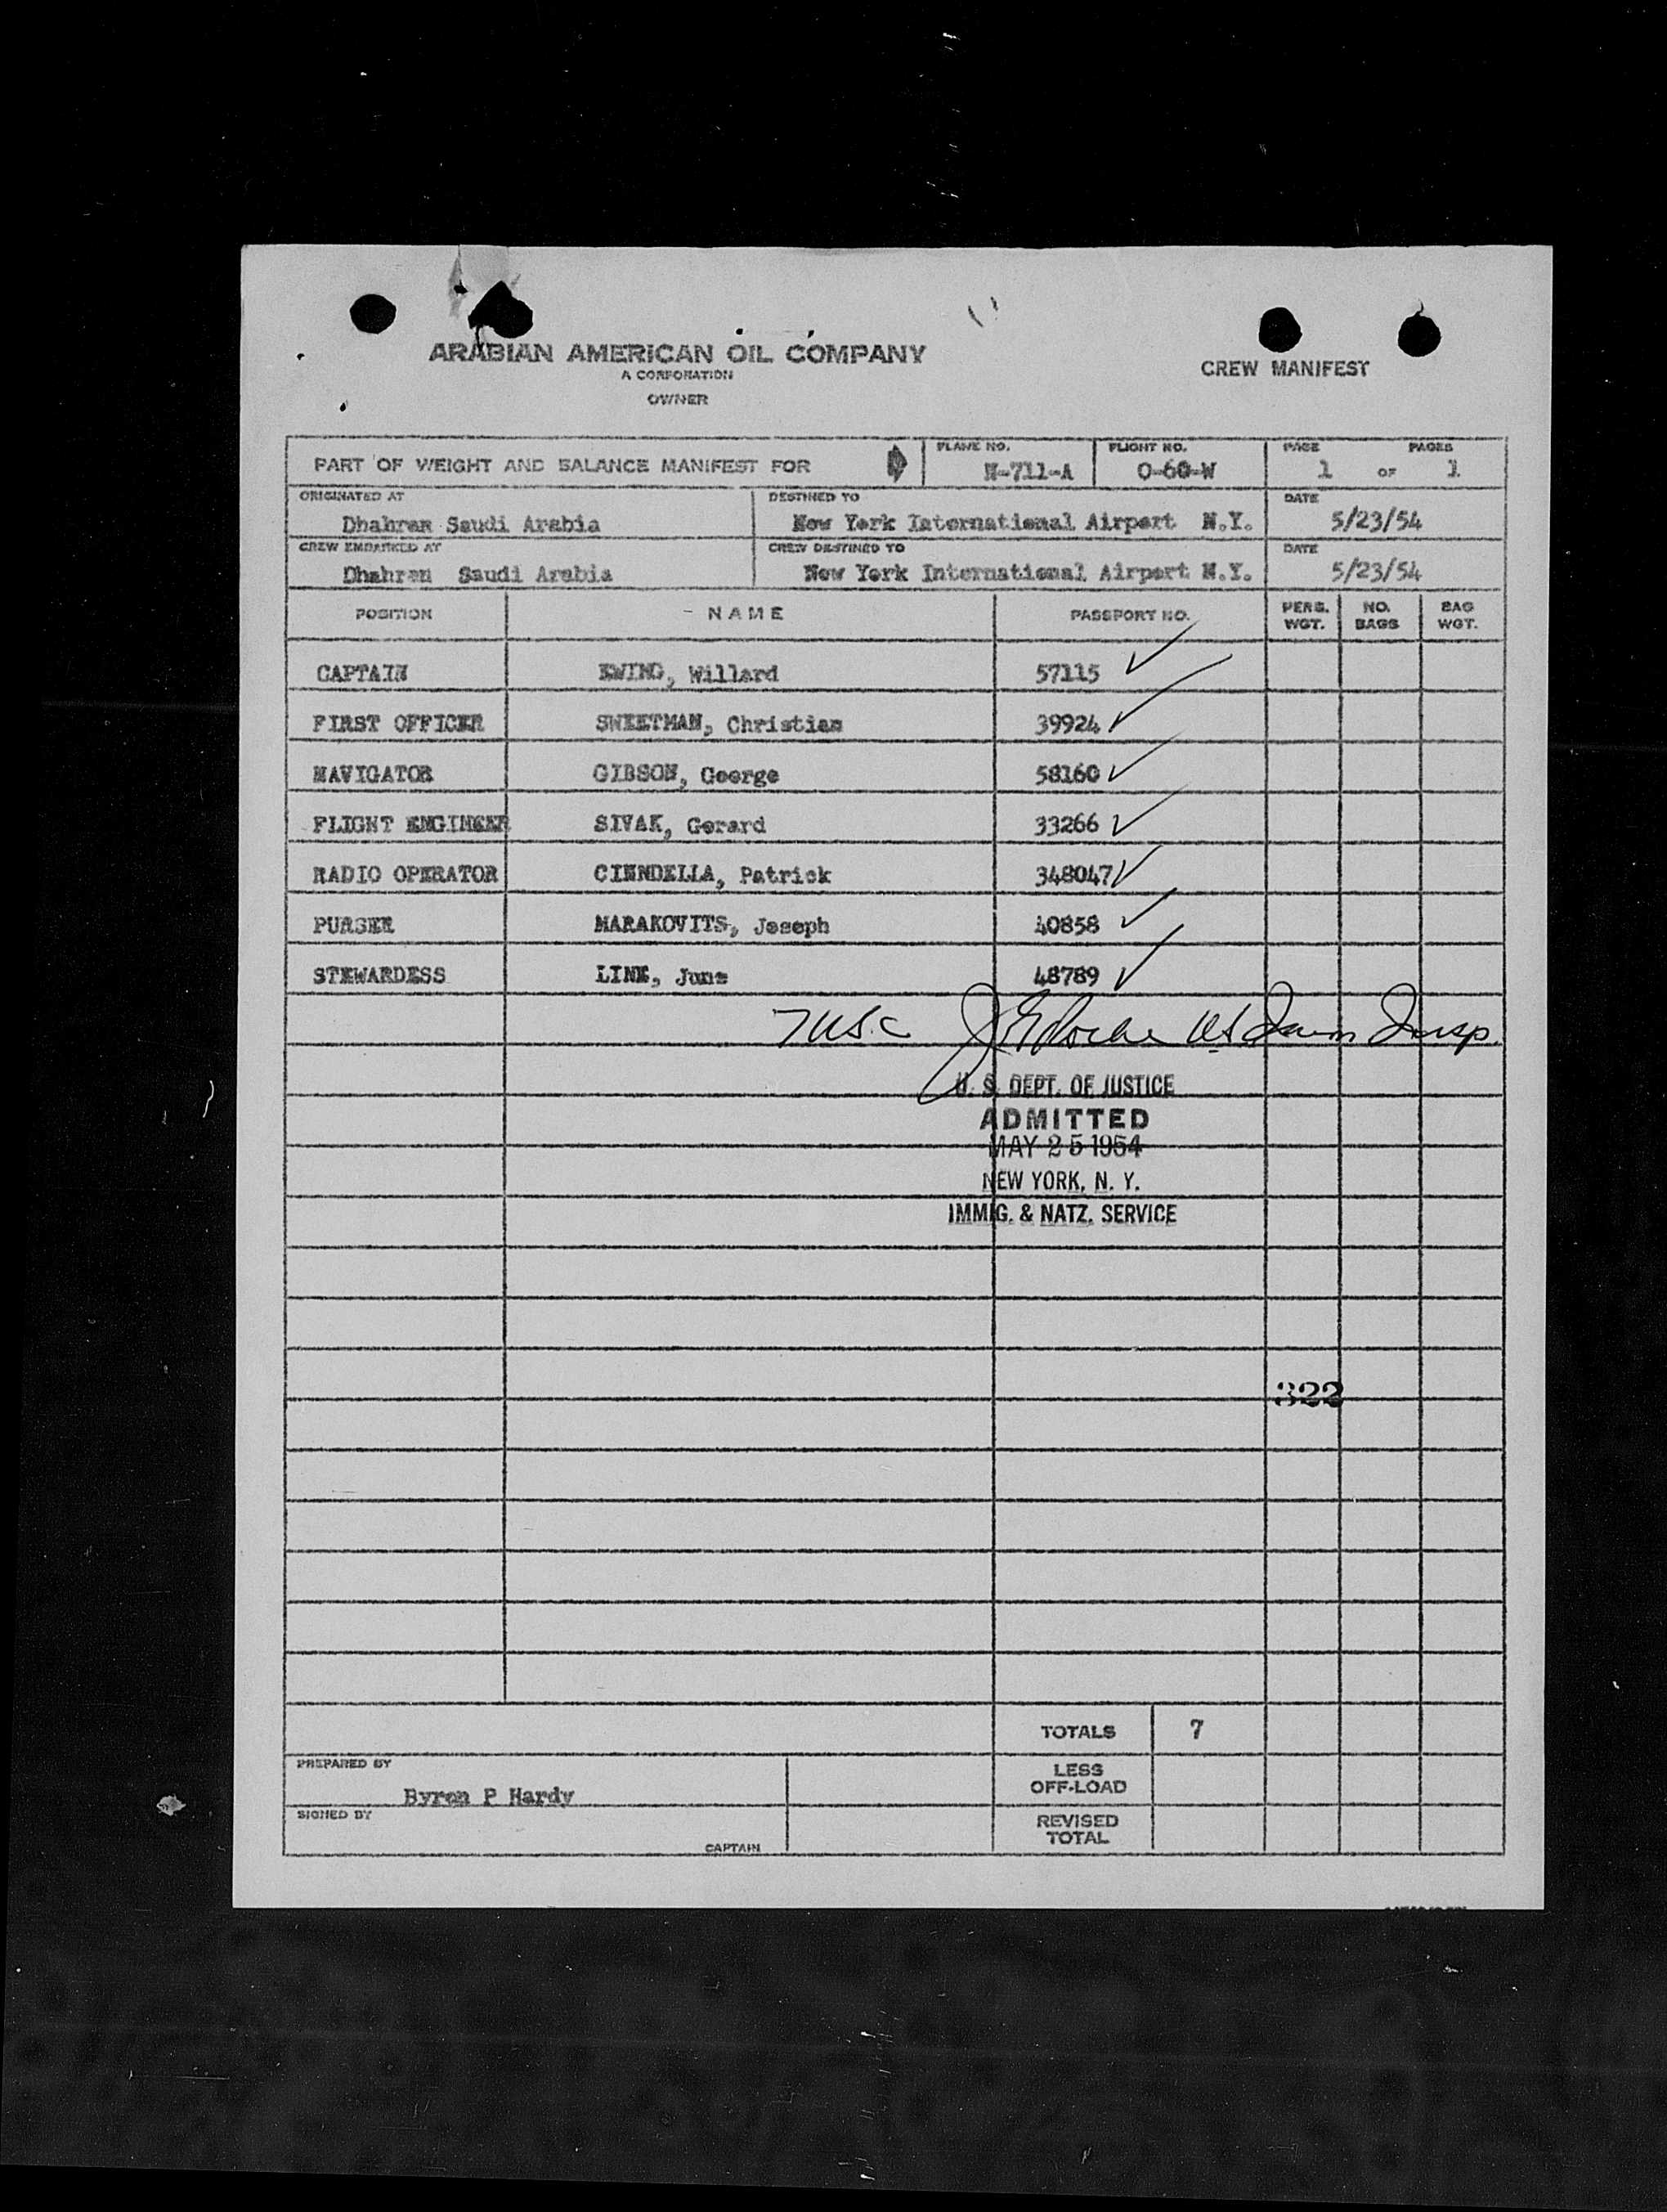 ARABIAN AMERICAN OIL COMPANY
A CORPORATION
OWNER
CREW MANIFEST
PART OF WEIGHT AND BALANCE MANIFEST FOR
PLANE NO.
N-711-A
FLIGHT NO.
O-60-W
PAGE PAGES
1 OF 1
ORIGINATED AT
Dhahran Saudi Arabia
DESTINED TO
New York International Airport N.Y.
DATE
5/23/54
CREW EMBARKED AT
Dhahran Saudi Arabia
CREW DESTINED TO
New York International Airport N.Y.
DATE
5/23/54
POSITION NAME PASSPORT NO. PERS. WGT. NO. BAGS BAG WGT.
CAPTAIN EWING, Willard 57115
FIRST OFFICER SWEETMAN, Christian 39924
NAVIGATOR GIBSON, George 58160
FLIGHT ENGINEER SIVAK, Gerard 33266
RADIO OPERATOR CIENDELLA, Patrick 348047
PURSER MARAKOVITS, Joseph 40858
STEWARDESS LINK, June 48789
7 USC Insp.
U. S. DEPT. OF JUSTICE
ADMITTED
MAY 25 1954
NEW YORK, N. Y.
IMMIG. & NATZ. SERVICE
322
TOTALS 7
PREPARED BY
Byron P Hardy
LESS
OFF-LOAD
SIGNED BY
CAPTAIN
REVISED
TOTAL